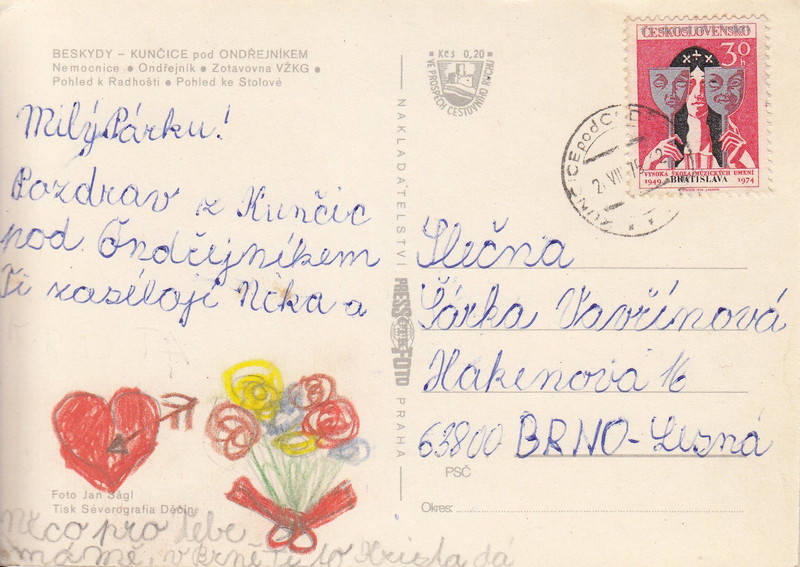 BESKYDY – KUNČICE pod ONDŘEJNÍKEM
Nemocnice ● Ondřejník ● Zotavovna VŽKG ●
Pohled k Radhošti ● Pohled ke Stolové
Milý Párku!
Pozdrav z Kunčic
pod Ondřejníkem
Ti zasílají Nčka a
Foto Jan Ságl
Tisk Severografia Děčín
Něco pro tebe
mámě, v Brně Ti to Krista dá
Kčs 0,20
VE PROSPĚCH CESTOVNÍHO RUCHU
NAKLADATELSTVÍ PRESSFOTO PRAHA
ČESKOSLOVENSKO
30 h
VYSOKÁ ŠKOLA MÚZICKÝCH UMENÍ
1949 BRATISLAVA 1974
KUNČICE pod O
2.VII.75
Slečna
Šárka Vavřínová
Hakenova 16
63800 BRNO-Lesná
PSČ
Okres: